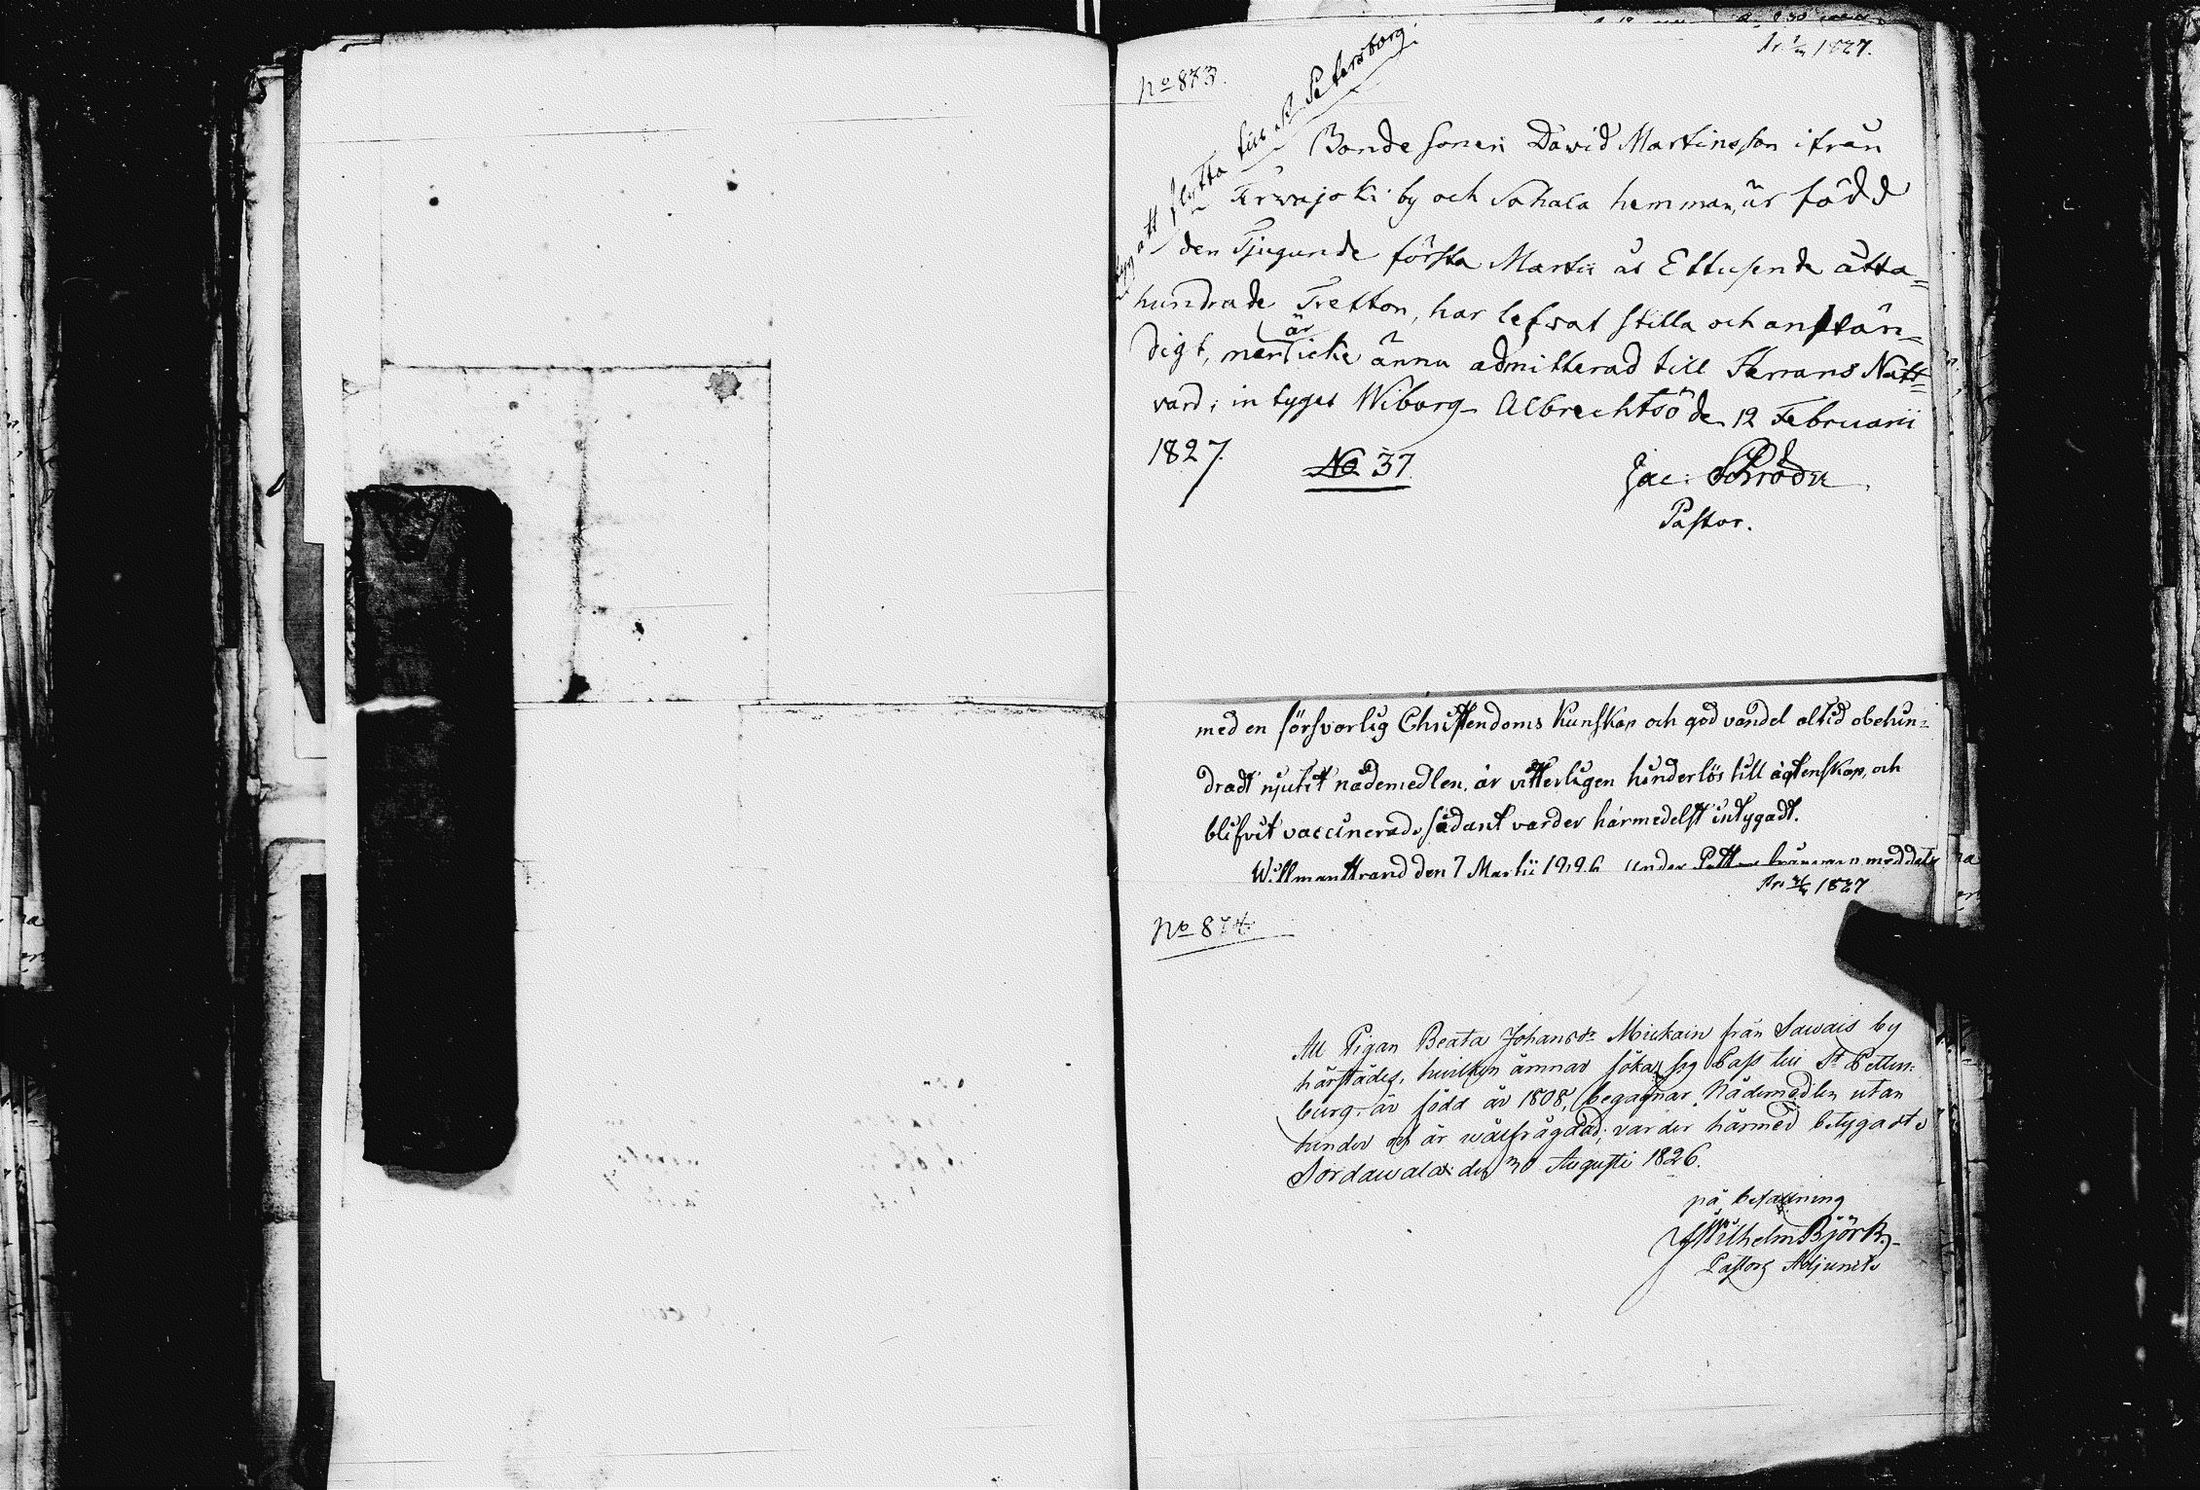 No 873.
1827.
att flytta till St Petersborg.
Bonde sonen David Martinsson ifrån
Terwajoki by och Sohala hemman, är född
den Tjugunde första Martii år Ettusende åtta=
hundrade Tretton, har lefwat stilla och anstän=
digt, men är icke ännu admitterad till Herrans Natt=
vard; intygas Wiborg Albrechtsö de 12 Februarii
1827. No 37. Jac: Schröder
Pastor.
med en försvarlig Christendoms Kunskap och god vandel altid obehin=
dradt njutit nådemedlen, är vitterligen hinderlös till ägtenskap, och
blifvit vaccinerad, sådant varder härmedelst intygadt.
Willmanstrand den 7 Martii 1826 under
1827
No 874.
Att Pigan Beata Johansdr Miukain från Sawais by
härstädes, hvilken ämnar söka sig Pass till St Petters=
burg, är född år 1808, begagnar Nådemedlen utan
hinder och är wälfrägdad; varder härmed betygadt.
Sordawala den 30 Augusti 1826.
på befallning
Wilhelm Björk
Pastors Adjunct.